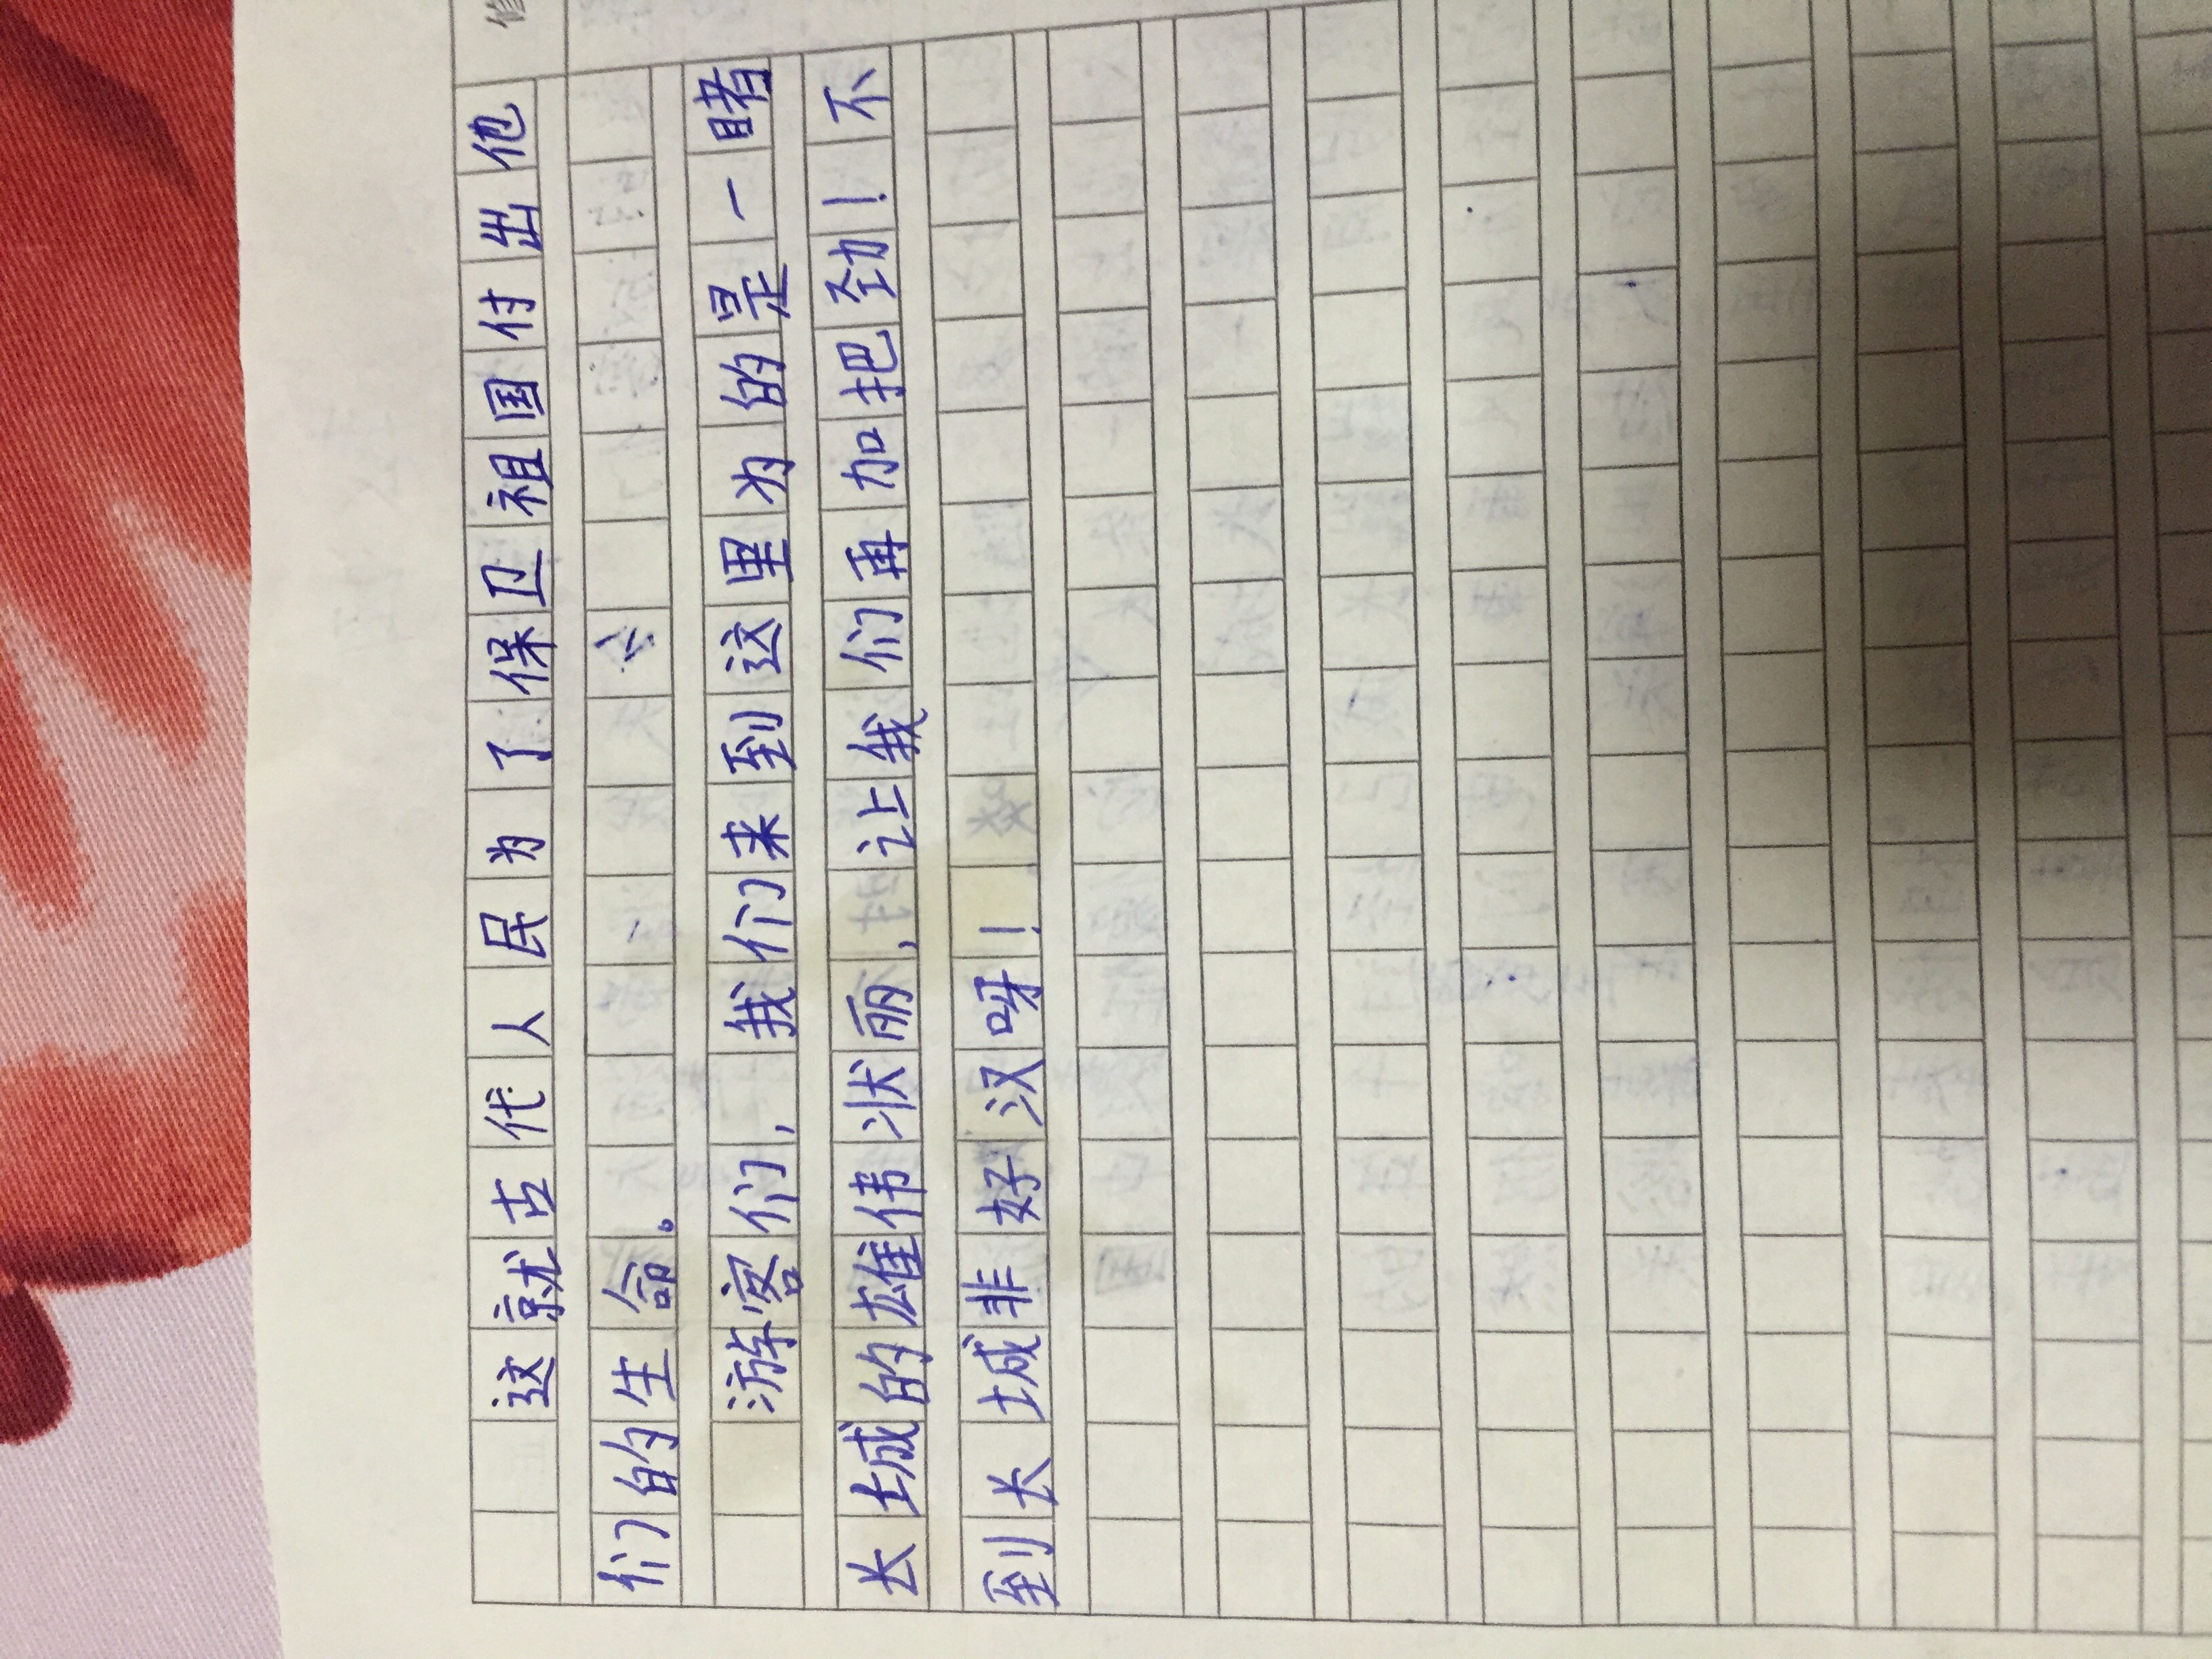 修
这就古代人民为了保卫祖国付出他
们的生命。
游客们，我们来到这里为的是一睹
长城的雄伟状丽，让我们再加把劲！不
到长城非好汉呀！